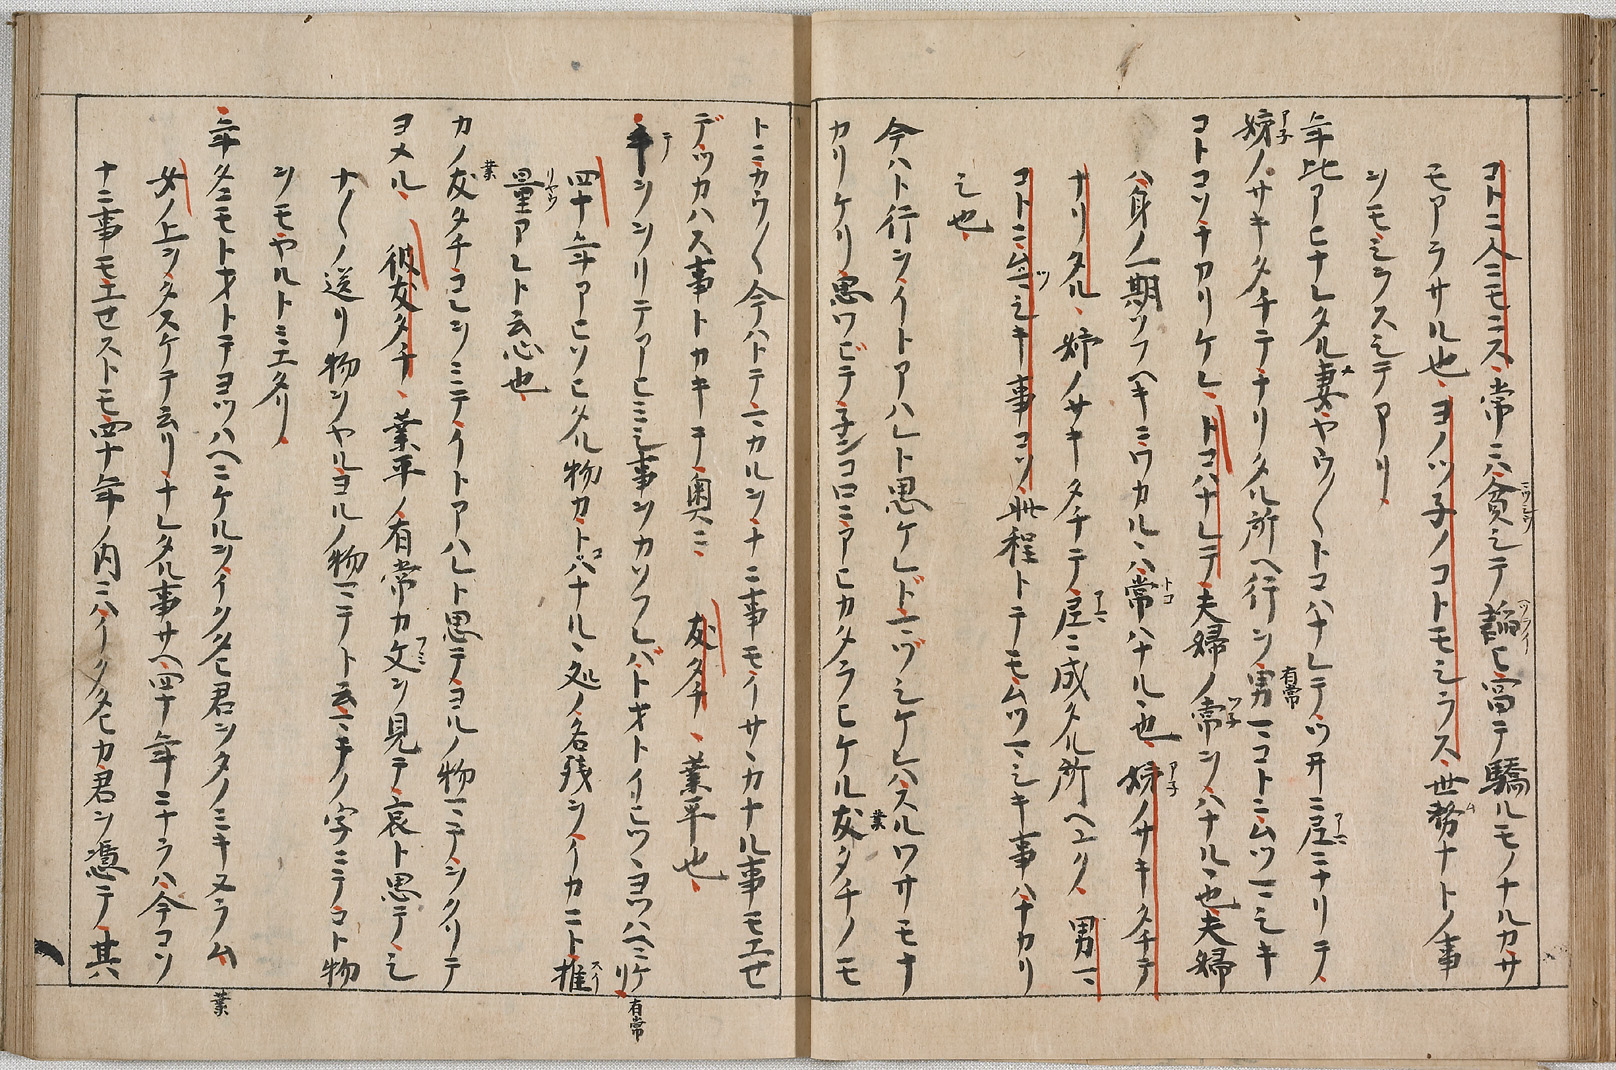 コトニ人ニモニス常ニハ貧シテ諂ヒ富テ驕ルモノナルカサ
モアラサル也ヨノツ子ノコトモシラス世務ナトノ事
ンモシラスシテアリ
年比アヒナレタル妻ヤウ〱トコハナレテツ井ニ尼ニナリテ
姉ノサキタチテナリタル所ヘ行ン男マコトニムツマシキ
コトコソナカリケレトコハナレテ夫婦ノ常ンハナル也夫婦
ハ身ノ一期ソフヘキニワカルハ常ハナル也姉ノサキタチテ
ナリタル姉ノサキタチテ尼ニ成タル所ヘユク男マ
コトニムツマシキ事コソ此程トテモムツマシキ事ハナカリ
シ也
今ハト行ンイトアハレト思ケレドマヅシケレハスルワサモナ
カリケリ思ワビテ子ンコロニアヒカタラヒケル友タチノモ
トニカウ〱今ハトテマカルンナニ事モイサヽカナル事モエセ
デツカハス事トカキテ奥ニ 友タチ 業平也
手ンンリテアヒミシ事ンカソフレバトオトイヒツヽヨツハヘニケリ
四十年アヒソヒタル物カトコハナルヽ処ノ名残ンイカニト推
量アレト云心也
カノ友タチコレンミテイトアハレト思テヨルノ物マテンクリテ
ヨメル 彼友タチ 業平ノ有常カ文ン見テ哀ト思テシ
ナ〱ノ送リ物ンヤルヨルノ物マテト云マキノ字ニテコト物
ンモヤルトミエタリ
年タニモトオトテヨツハヘニケルンイクタヒ君ンタノミキヌラム
女ノ上ンタスケテ云リナレタル事サヘ四十年ニナラハ今コン
ナニ事モエセストモ四十年ノ内ニハイクタヒカ君ン憑テ其